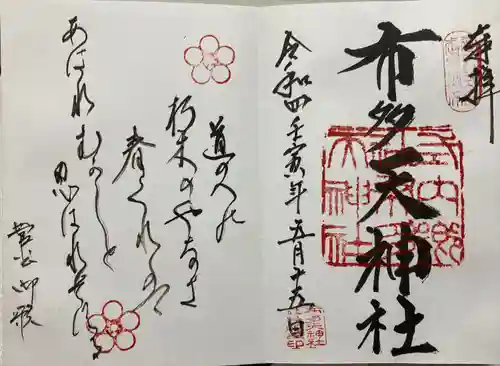 奉拝
布多天神社
式内郷
社布多
天神社
令和四壬寅年五月十五日
道のへの
朽木のやなき
春くれは
あはれむかしと
はれそする
菅公御歌